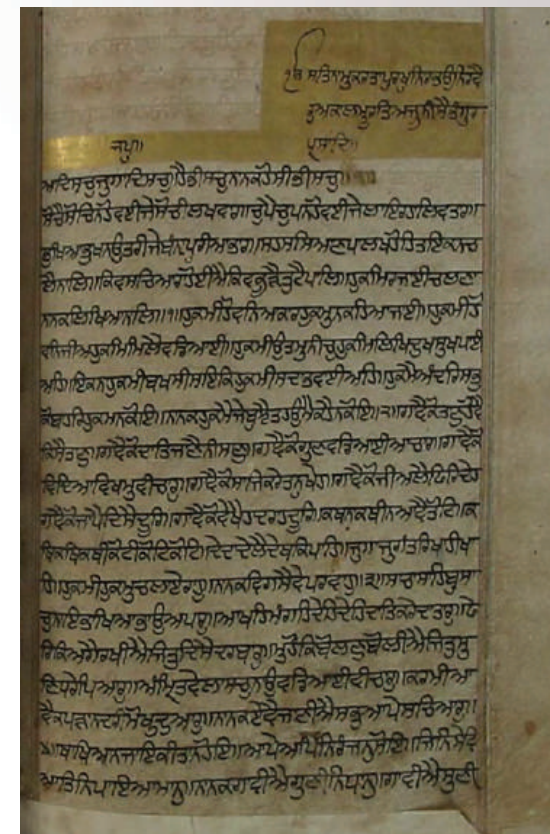 ੴ ਸਤਿਨਾਮੁਕਰਤਾਪੁਰਖੁਨਿਰਭਉਨਿਰਵੈ
ਰੁਅਕਾਲਮੂਰਤਿਅਜੂਨੀਸੈਭੰਗੁਰ
ਜਪੁ॥ ਪ੍ਰਸਾਦਿ॥
ਆਦਿਸਚੁਜੁਗਾਦਿਸਚੁਹੈਭੀਸਚੁਨਾਨਕਹੋਸੀਭੀਸਚੁ॥
ਸੋਚੈਸੋਚਿਨਹੋਵਈਜੇਸੋਚੀਲਖਵਾਰ॥ਚੁਪੈਚੁਪਨਹੋਵਈਜੇਲਾਇਰਹਾਲਿਵਤਾਰ॥
ਭੁਖਿਆਭੁਖਨਉਤਰੀਜੇਬੰਨਾਪੁਰੀਆਭਾਰ॥ਸਹਸਸਿਆਣਪਾਲਖਹੋਹਿਤਇਕਨਚ
ਲੈਨਾਲਿ॥ਕਿਵਸਚਿਆਰਾਹੋਈਐਕਿਵਕੂੜੈਤੁਟੈਪਾਲਿ॥ਹੁਕਮਿਰਜਾਈਚਲਣਾ
ਨਾਨਕਲਿਖਿਆਨਾਲਿ॥੧॥ਹੁਕਮੀਹੋਵਨਿਆਕਾਰਹੁਕਮੁਨਕਹਿਆਜਾਈ॥ਹੁਕਮੀਹੋ
ਵਨਿਜੀਅਹੁਕਮਿਮਿਲੈਵਡਿਆਈ॥ਹੁਕਮੀਉਤਮੁਨੀਚੁਹੁਕਮਿਲਿਖਿਦੁਖਸੁਖਪਾਈ
ਅਹਿ॥ਇਕਨਾਹੁਕਮੀਬਖਸੀਸਇਕਿਹੁਕਮੀਸਦਾਭਵਾਈਅਹਿ॥ਹੁਕਮੈਅੰਦਰਿਸਭੁ
ਕੋਬਾਹਰਿਹੁਕਮਨਕੋਇ॥ਨਾਨਕਹੁਕਮੈਜੇਬੁਝੈਤਹਉਮੈਕਹੈਨਕੋਇ॥੨॥ਗਾਵੈਕੋਤਾਣੁਹੋਵੈ
ਕਿਸੈਤਾਣੁ॥ਗਾਵੈਕੋਦਾਤਿਜਾਣੈਨੀਸਾਣੁ॥ਗਾਵੈਕੋਗੁਣਵਡਿਆਈਆਚਾਰ॥ਗਾਵੈਕੋ
ਵਿਦਿਆਵਿਖਮੁਵੀਚਾਰੁ॥ਗਾਵੈਕੋਸਾਜਿਕਰੇਤਨੁਖੇਹ॥ਗਾਵੈਕੋਜੀਅਲੈਫਿਰਿਦੇਹ
ਗਾਵੈਕੋਜਾਪੈਦਿਸੈਦੂਰਿ॥ਗਾਵੈਕੋਵੇਖੈਹਾਦਰਾਹਦੂਰਿ॥ਕਥਨਾਕਥੀਨਆਵੈਤੋਟਿ॥ਕ
ਥਿਕਥਿਕਥੀਕੋਟੀਕੋਟਿਕੋਟਿ॥ਦੇਦਾਦੇਲੈਦੇਥਕਿਪਾਹਿ॥ਜੁਗਾਜੁਗੰਤਰਿਖਾਹੀਖਾ
ਹਿ॥ਹੁਕਮੀਹੁਕਮੁਚਲਾਏਰਾਹੁ॥ਨਾਨਕਵਿਗਸੈਵੇਪਰਵਾਹੁ॥੩॥ਸਾਚਾਸਾਹਿਬੁਸਾ
ਚੁਨਾਇਭਾਖਿਆਭਾਉਅਪਾਰੁ॥ਆਖਹਿਮੰਗਹਿਦੇਹਿਦੇਹਿਦਾਤਿਕਰੇਦਾਤਾਰੁ॥ਫੇ
ਰਿਕਿਅਗੈਰਖੀਐਜਿਤੁਦਿਸੈਦਰਬਾਰੁ॥ਮੁਹੌਕਿਬੋਲਣੁਬੋਲੀਐਜਿਤੁਸੁ
ਣਿਧਰੇਪਿਆਰੁ॥ਅੰਮ੍ਰਿਤਵੇਲਾਸਚੁਨਾਉਵਡਿਆਈਵੀਚਾਰੁ॥ਕਰਮੀਆ
ਵੈਕਪੜਾਨਦਰੀਮੋਖੁਦੁਆਰੁ॥ਨਾਨਕਏਵੈਜਾਣੀਐਸਭੁਆਪੇਸਚਿਆਰੁ॥
੪॥ਥਾਪਿਆਨਜਾਇਕੀਤਾਨਹੋਇ॥ਆਪੇਆਪਿਨਿਰੰਜਨੁਸੋਇ॥ਜਿਨਿਸੇਵਿ
ਆਤਿਨਿਪਾਇਆਮਾਨੁ॥ਨਾਨਕਗਾਵੀਐਗੁਣੀਨਿਧਾਨੁ॥ਗਾਵੀਐਸੁਣੀ